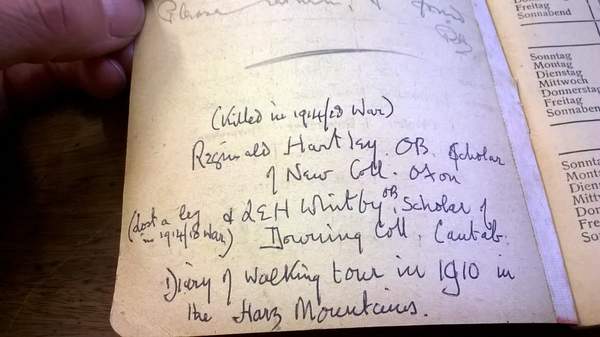 Please return, if found
(Killed in 1914/18 War)
Reginald Hartley. OB. Scholar
of New Coll. Oxon
(Lost a leg in 1914/18 War) & LEH Whitby OB, Scholar of
Downing Coll, Cantab.
Diary of walking tour in 1910 in
the Harz Mountains.
Freitag
Sonnabend
Sonntag
Montag
Dienstag
Mittwoch
Donnerstag
Freitag
Sonnabend
Sonnta
Mont
Diens
Mitt
Don
Fre
So